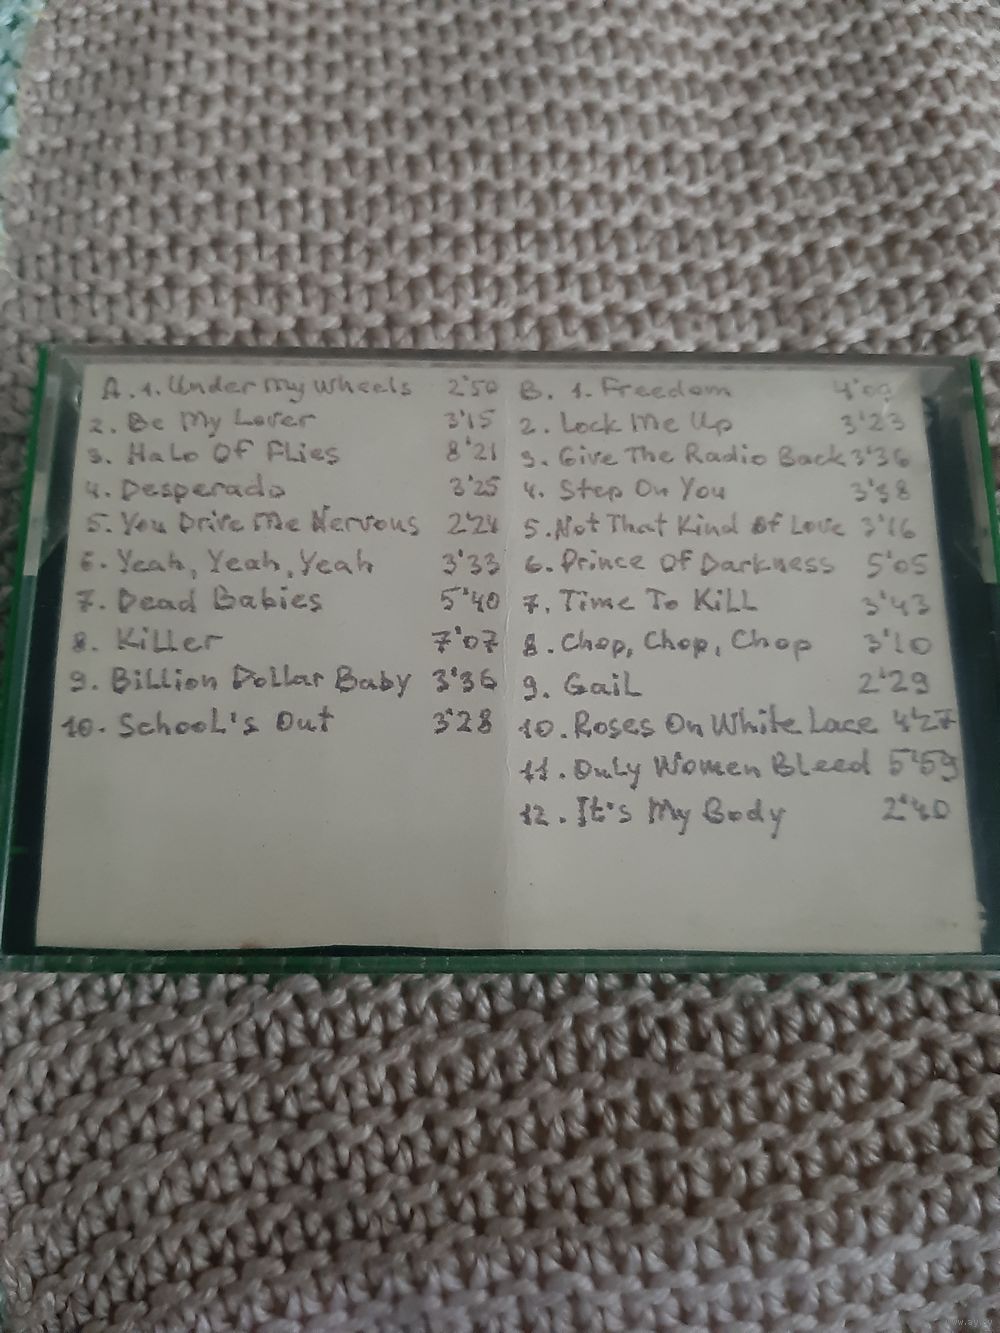 A. 1. Under My Wheels 2'50
2. Be My Lover 3'15
3. Halo Of Flies 8'21
4. Desperado 3'25
5. You Drive Me Nervous 2'24
6. Yeah, Yeah, Yeah 3'33
7. Dead Babies 5'40
8. Killer 7'07
9. Billion Dollar Baby 3'36
10. School's Out 3'28
B. 1. Freedom
2. Lock Me Up 3'23
3. Give The Radio Back 3'36
4. Step On You 3'38
5. Not That Kind Of Love 3'16
6. Prince Of Darkness 5'05
7. Time To Kill 3'43
8. Chop, Chop, Chop 3'10
9. Gail 2'29
10. Roses On White Lace 4'27
11. Only Women Bleed 5'59
12. It's My Body 2'40
www.ay.by